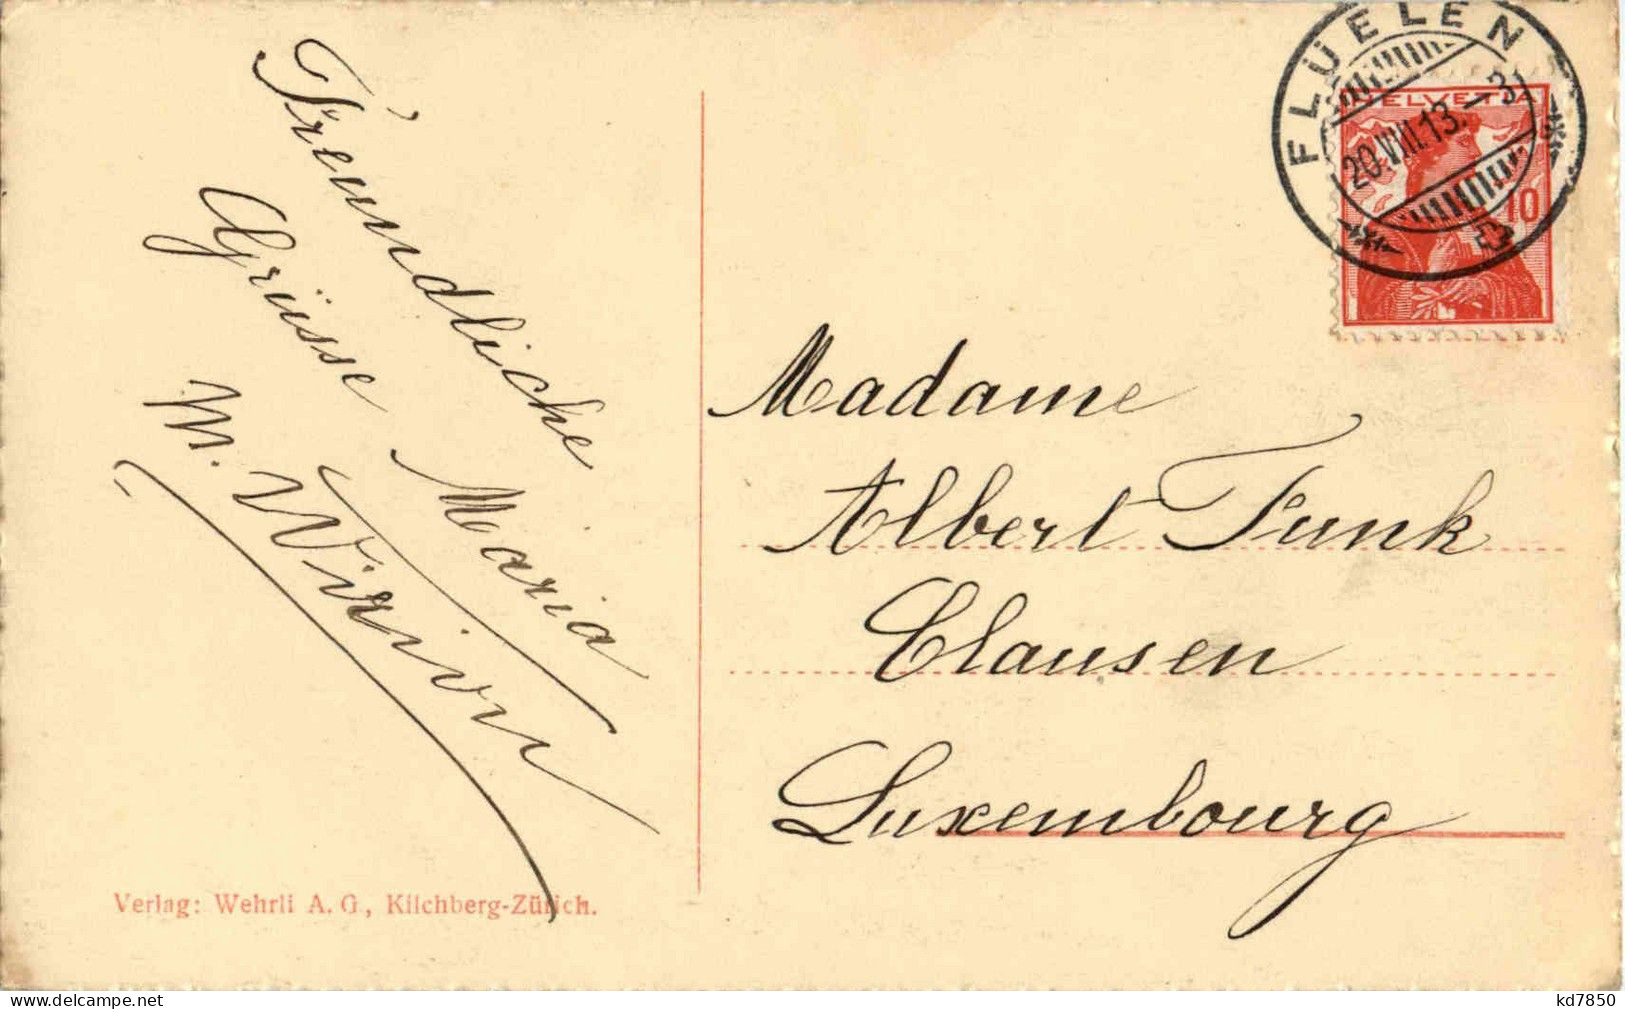 Freundliche
Grüsse Maria
M. Wirion
FLÜELEN
20.VIII.13.-3
HELVETIA
10
Madame
Albert Funk
Clausen
Luxembourg
Verlag: Wehrli A. G., Kilchberg-Zürich.
kd7850